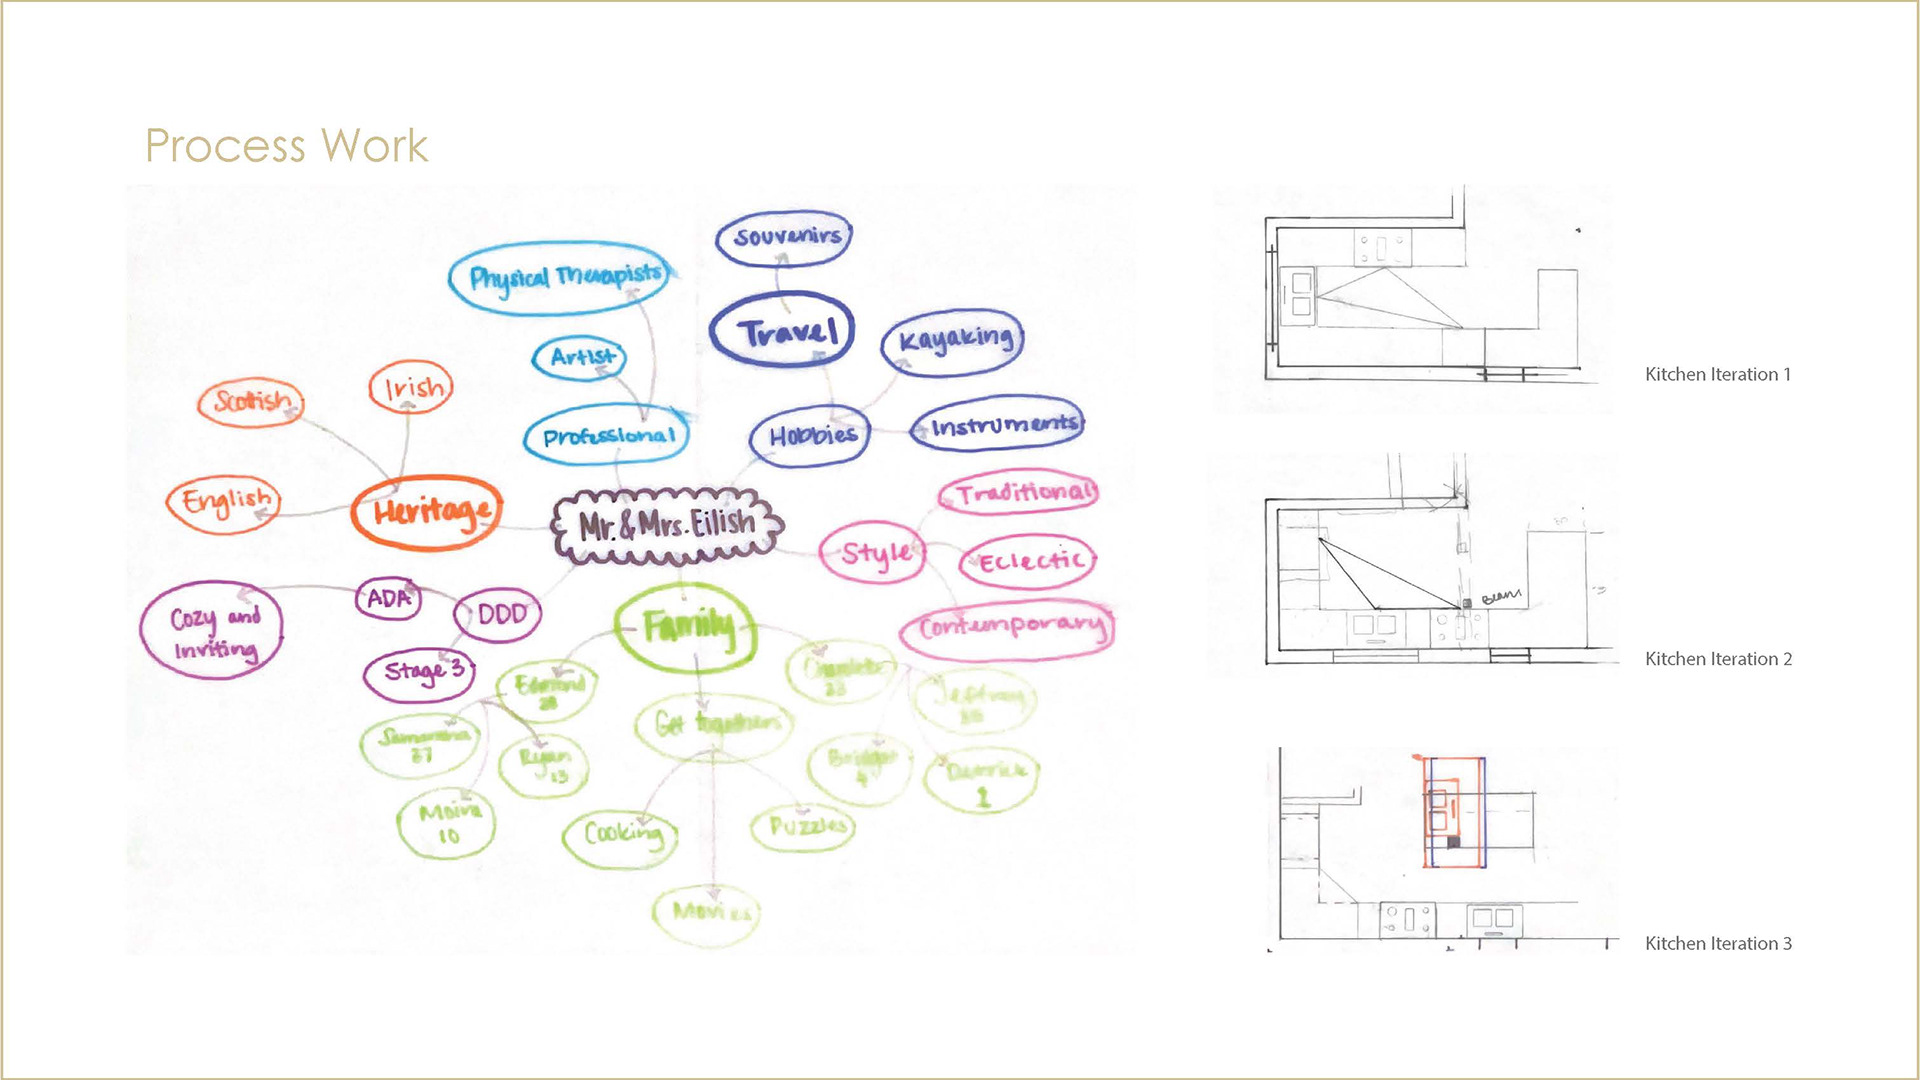 Process Work
Souvenirs
Physical Therapists
Travel
Kayaking
Artist
Irish
Scottish
Professional
Hobbies
Instruments
Traditional
English
Heritage
Mr. & Mrs. Eilish
Style
Eclectic
ADA
DDD
Cozy and
Inviting
Family
Contemporary
Stage 3
Edmond
28
Get togethers
23
Jeffrey
Samantha
37
Ryan
13
Bridget
4
Derrick
1
Moira
10
Cooking
Puzzles
Movies
Kitchen Iteration 1
Beam
Kitchen Iteration 2
Kitchen Iteration 3